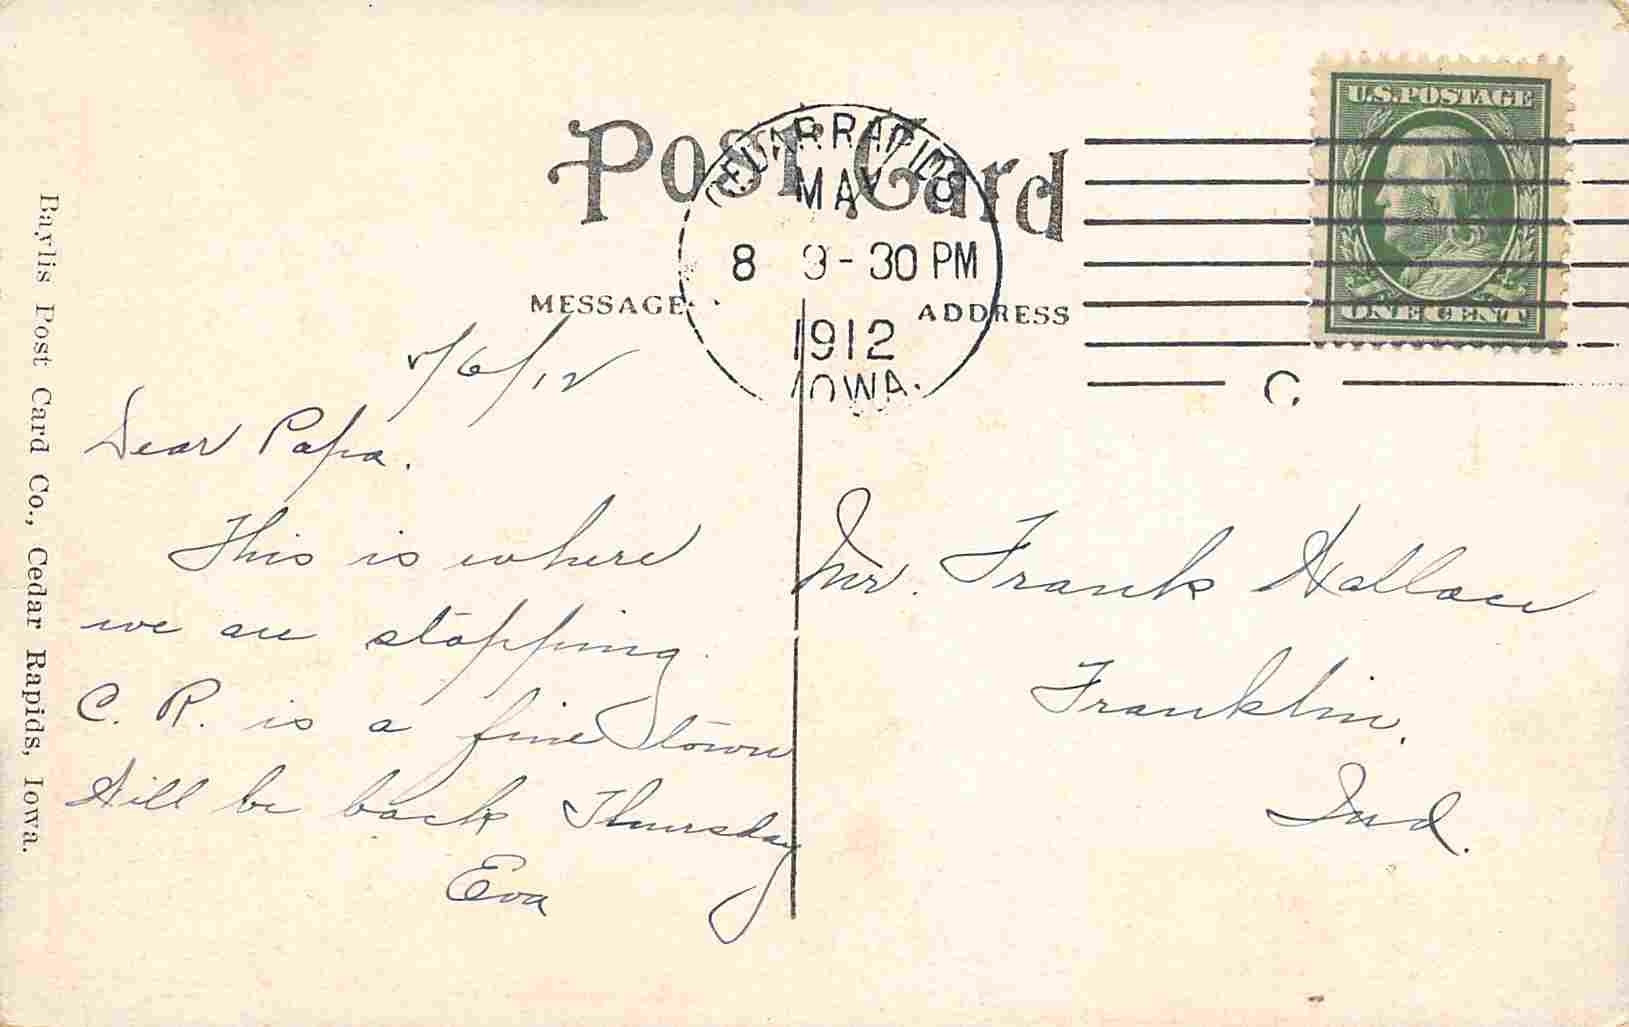 Post Card
CEDAR RAPIDS
MAY
8 -30 PM
1912
IOWA.
C
U.S. POSTAGE
ONE CENT
MESSAGE
ADDRESS
5/6/12
Dear Papa.
This is where
we are stopping.
C. R. is a fine town
Will be back Thursday
Eva
Mr. Frank Wallace
Franklin,
Ind.
Baylis Post Card Co., Cedar Rapids, Iowa.